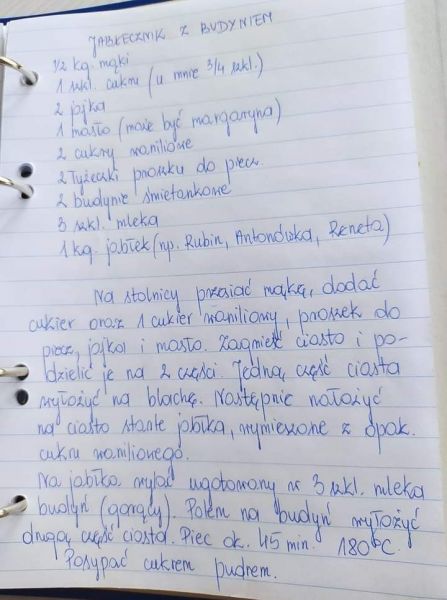 JABŁECZNIK Z BUDYNIEM
1/2 kg. mąki
1 szkl. cukru (u mnie 3/4 szkl.)
2 jajka
1 masło (może być margaryna)
2 cukry waniliowe
2 łyżeczki proszku do piecz.
2 budynie śmietankowe
3 szkl. mleka
1 kg. jabłek (np. Rubin, Antonówka, Reneta)
Na stolnicy przesiać mąkę, dodać
cukier oraz 1 cukier waniliowy, proszek do
piecz, jajka i masło. Zagnieść ciasto i po-
dzielić je na 2 części. Jedną część ciasta
wyłożyć na blachę. Następnie nałożyć
na ciasto starte jabłka, wymieszane z opak.
cukru waniliowego.
Na jabłka wylać ugotowany w 3 szkl. mleka
budyń (gorący). Potem na budyń wyłożyć
drugą część ciasta. Piec ok. 45 min. 180°C.
Posypać cukrem pudrem.